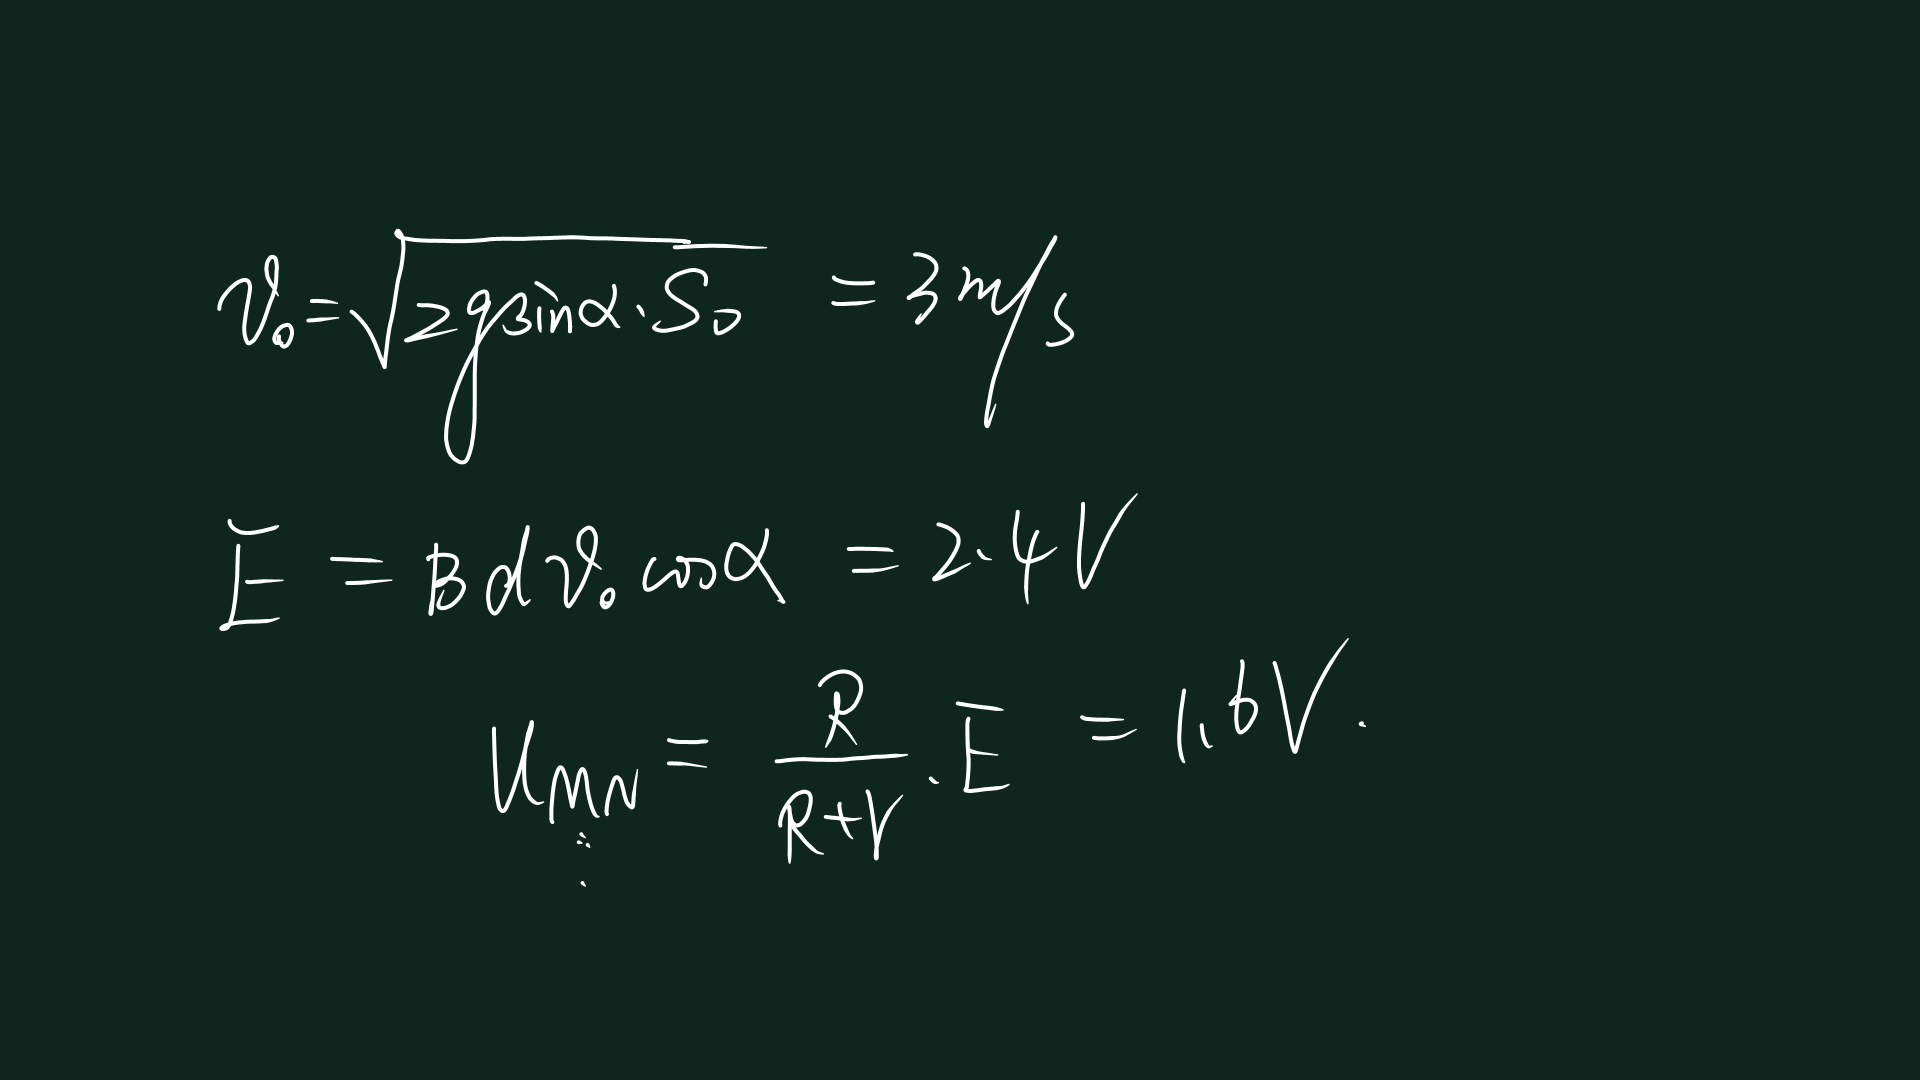 v₀=√(2gsinα·S₀) =3m/s
E = Bdv₀cosα =2.4V
U_MN = R/(R+r) · E = 1.6V.